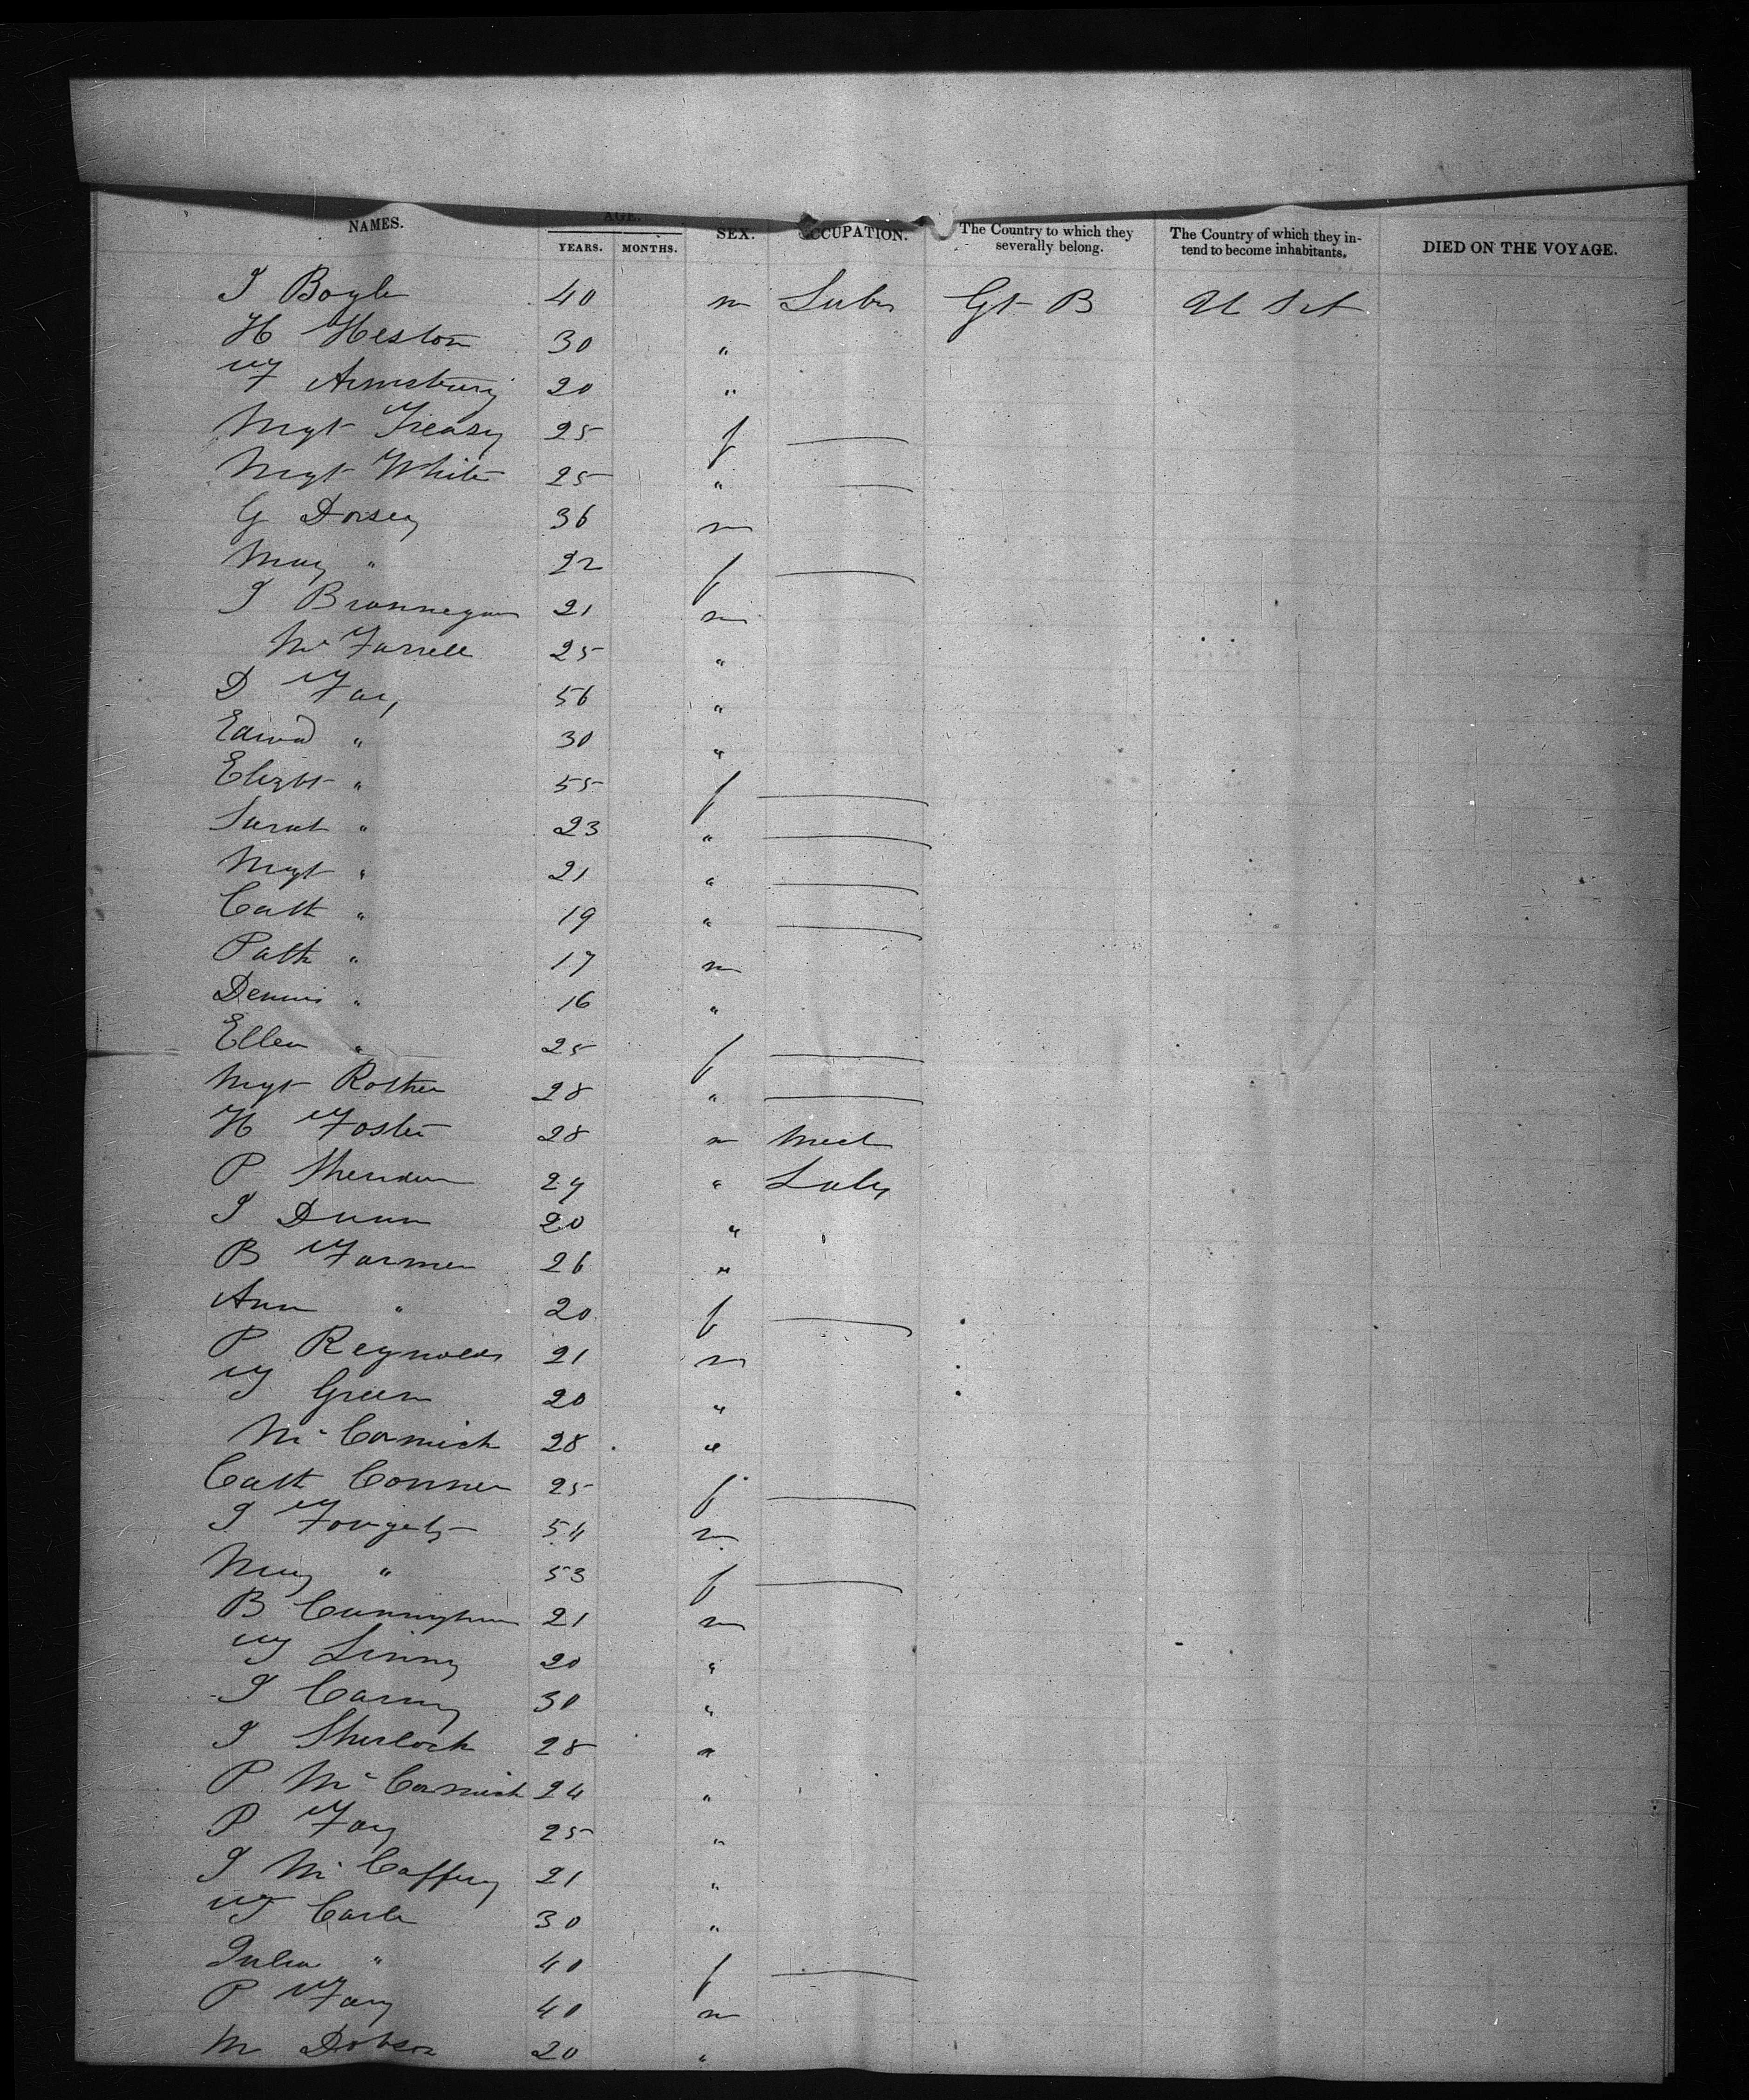 NAMES. AGE. YEARS. MONTHS. SEX. OCCUPATION. The Country to which they severally belong. The Country of which they intend to become inhabitants. DIED ON THE VOYAGE.
J Boyle 40 m Labr Gt B U S A
H Heston 30 "
F Armsbury 20 "
Mgt Treasy 25 f —
Mgt White 25 " —
G Dorsey 36 m
Mary " 22 f —
J Brannegan 21 m
McFarrell 25 "
D Fay 56 "
Edwd " 30 "
Elizbt " 55 f —
Sarah " 23 " —
Mgt " 21 " —
Cath " 19 " —
Patk " 17 m
Dennis " 16 "
Ellen " 25 f —
Mgt Rother 28 " —
H Foster 28 m Mech
P Sheridan 24 " Labr
J Dunn 20 "
B Farmer 26 "
Ann " 20 f —
P Reynolds 21 m
T Green 20 "
McCormick 28 "
Cath Conner 25 f —
J 54 m
Mary " 53 f —
B Cunningham 21 m
T Linny 20 "
J Carny 30 "
J Sherlock 28 "
P McCormick 24 "
P Fay 25 "
J McCaffery 21 "
T Carle 30 "
Julia " 40 f —
P Fay 40 m
M Dobson 20 "